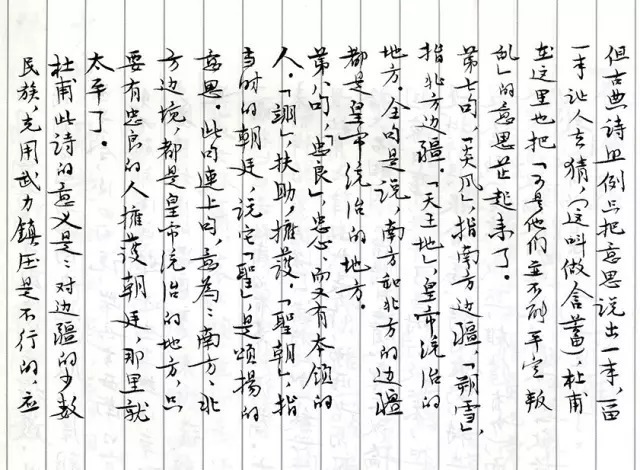 但古典诗照例只把意思说出一半，留
一半让人去猜，（这叫做含蓄），杜甫
在这里也把「可是他们并不能平定叛
乱」的意思茫起来了。
第七句，「炎风」，指南方边疆，「朔雪」，
指北方边疆。「天王地」，皇帝统治的
地方。全句是说，南方和北方的边疆
都是皇帝统治的地方。
第八句，「忠良」忠心而又有本领的
人。「翊」，扶助，擁護。「聖朝」，指
当时的朝廷，说它「聖」是颂揚的
意思。此句连上句，意为：南方、北
方边境，都是皇帝统治的地方，只
要有忠良的人擁護朝廷，那里就
太平了。
杜甫此诗的意义是：对边疆的少数
民族，光用武力鎮压是不行的，应